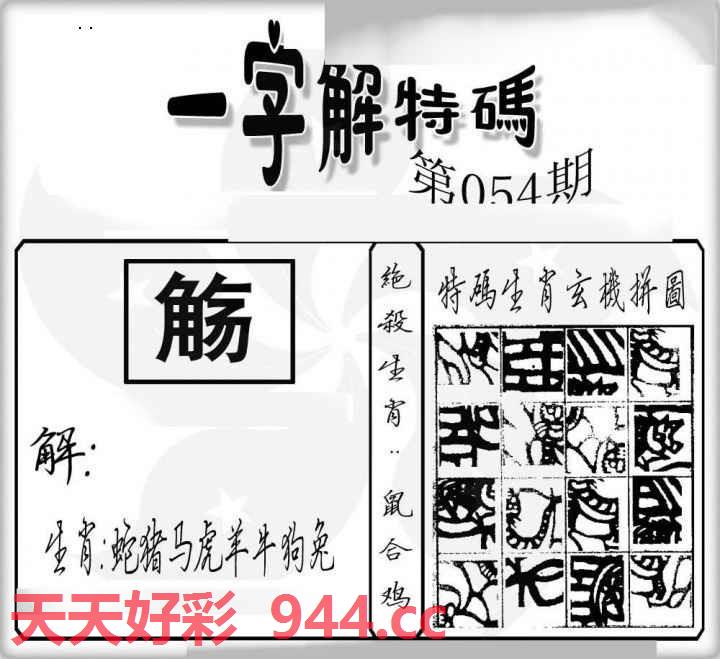 一字解特碼
第054期
觞
解:
生肖:蛇猪马虎羊牛狗兔
絶殺生肖:鼠合鸡
特碼生肖玄機拼圖
天天好彩 944.cc